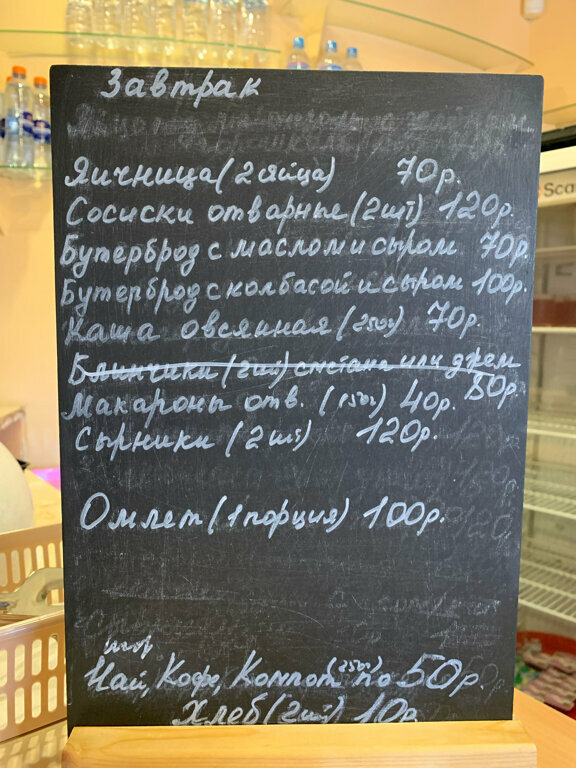 Завтрак
Яичница (2 яйца) 70р.
Сосиски отварные (2шт) 120р.
Бутерброд с маслом и сыром 70р.
Бутерброд с колбасой и сыром 100р.
Каша овсянная (250г) 70р.
Блинчики (2шт) сметана или джем 50р.
Макароны отв. (150г) 40р.
Сырники (2шт) 120р.
Омлет (1 порция) 100р.
Чай, Кофе, Компот (250г) по 50р.
Хлеб (2шт) 10р.
Sca